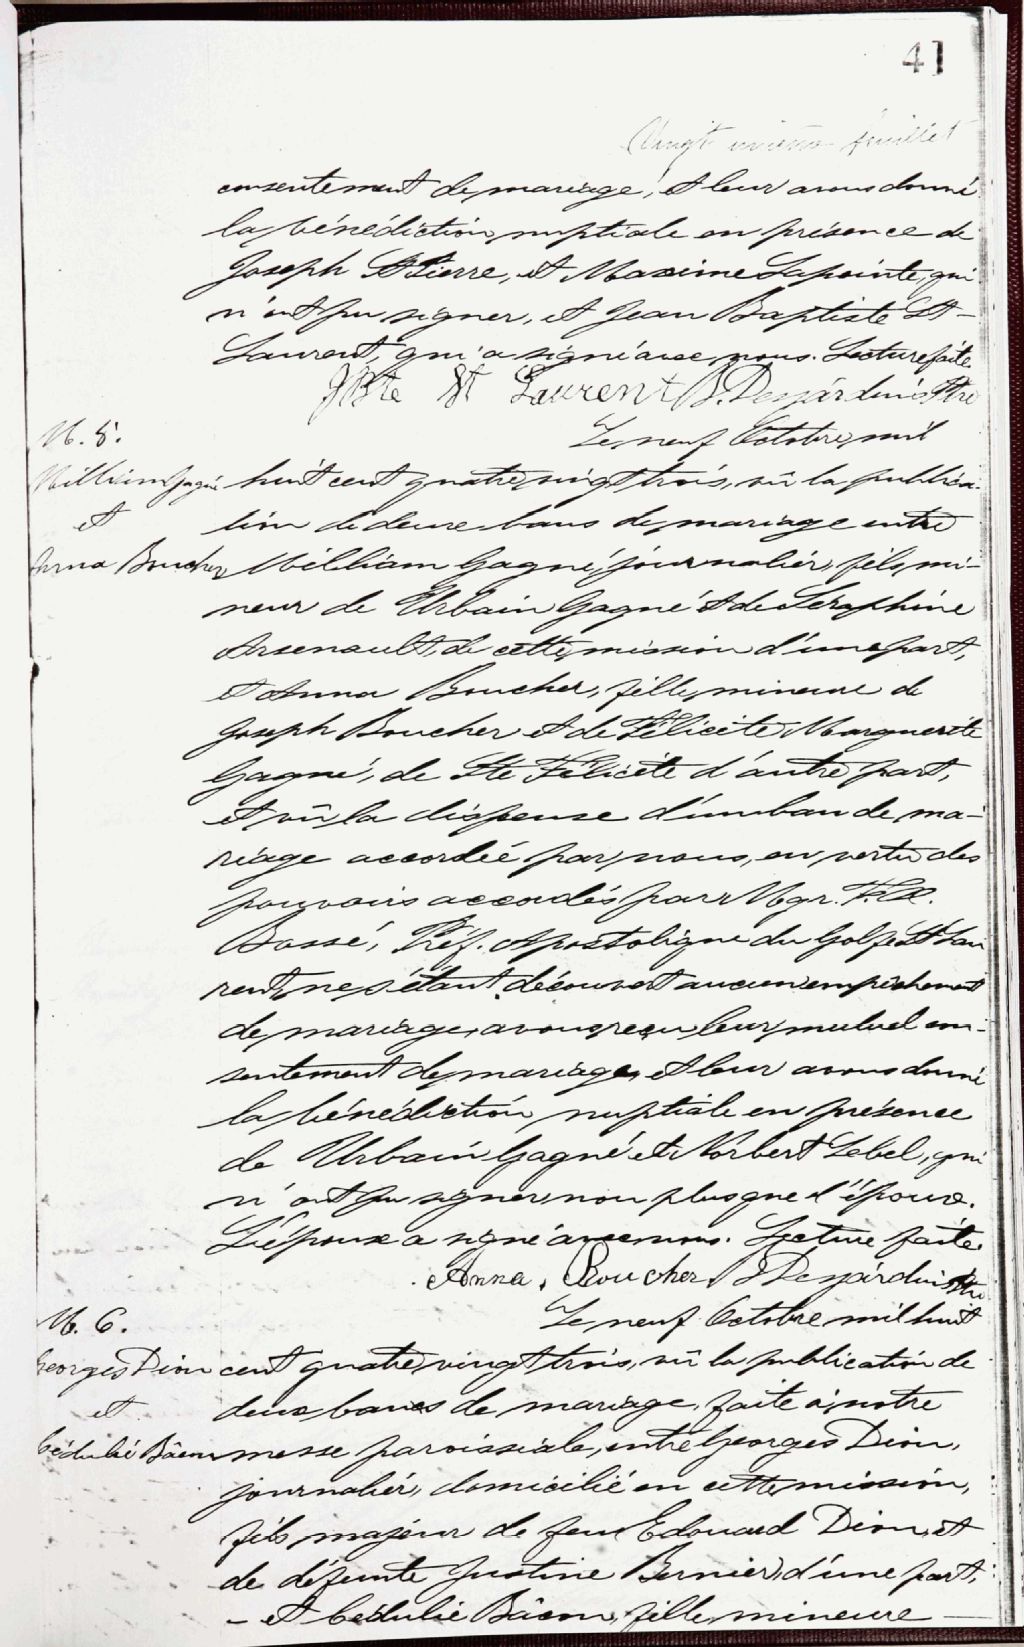 41
Vingt unième feuillet
consentement de mariage, et leur avons donné
la bénédiction nuptiale en présence de
Joseph St Pierre, et Maxime Lapointe, qui
n'ont pu signer, et Jean Baptiste St-
Laurent, qui a signé avec nous. Lecture faite.
JBte St Laurent B. Desjardins Ptre
Le neuf Octobre mil
M. 5.
William Gagné
et
Anna Boucher
huit cent quatre vingt trois, vû la publica-
tion de deux bans de mariage entre
William Gagné, journalier, fils mi-
neur de Urbain Gagné et de Séraphine
Arsenault, de cette mission d'une part,
et Anna Boucher, fille mineure de
Joseph Boucher et de Félicité Marguerite
Gagné, de Ste Félicité d'autre part,
et vû la dispense d'un ban de ma-
riage accordée par nous, en vertu des
pouvoirs accordés par Mgr. F.X.
Bossé, Préf. Apostolique du Golfe St Lau
rent, ne s'étant découvert aucun empêchement
de mariage, avons reçu leur mutuel con-
sentement de mariage, et leur avons donné
la bénédiction nuptiale en présence
de Urbain Gagné et Norbert Lebel, qui
n'ont pu signer, non plus que l'époux.
L'épouse a signé avec nous. Lecture faite.
Anna Boucher, B Desjardins Ptre
Le neuf Octobre mil huit
M. 6.
Georges Dion
et
Cédulié Bâcon
cent quatre vingt trois, vû la publication de
deux bancs de mariage, faite à notre
messe paroissiale, entre Georges Dion,
journalier, domicilié en cette mission,
fils majeur de feu Edouard Dion, et
de défunte Justine Bernier, d'une part,
- et Cédulie Bâcon, fille mineure -